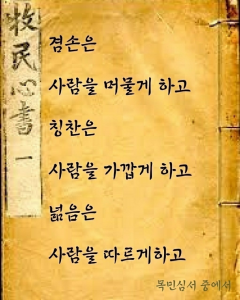 牧民心書 一
겸손은
사람을 머물게 하고
칭찬은
사람을 가깝게 하고
넓음은
사람을 따르게하고
목민심서 중에서